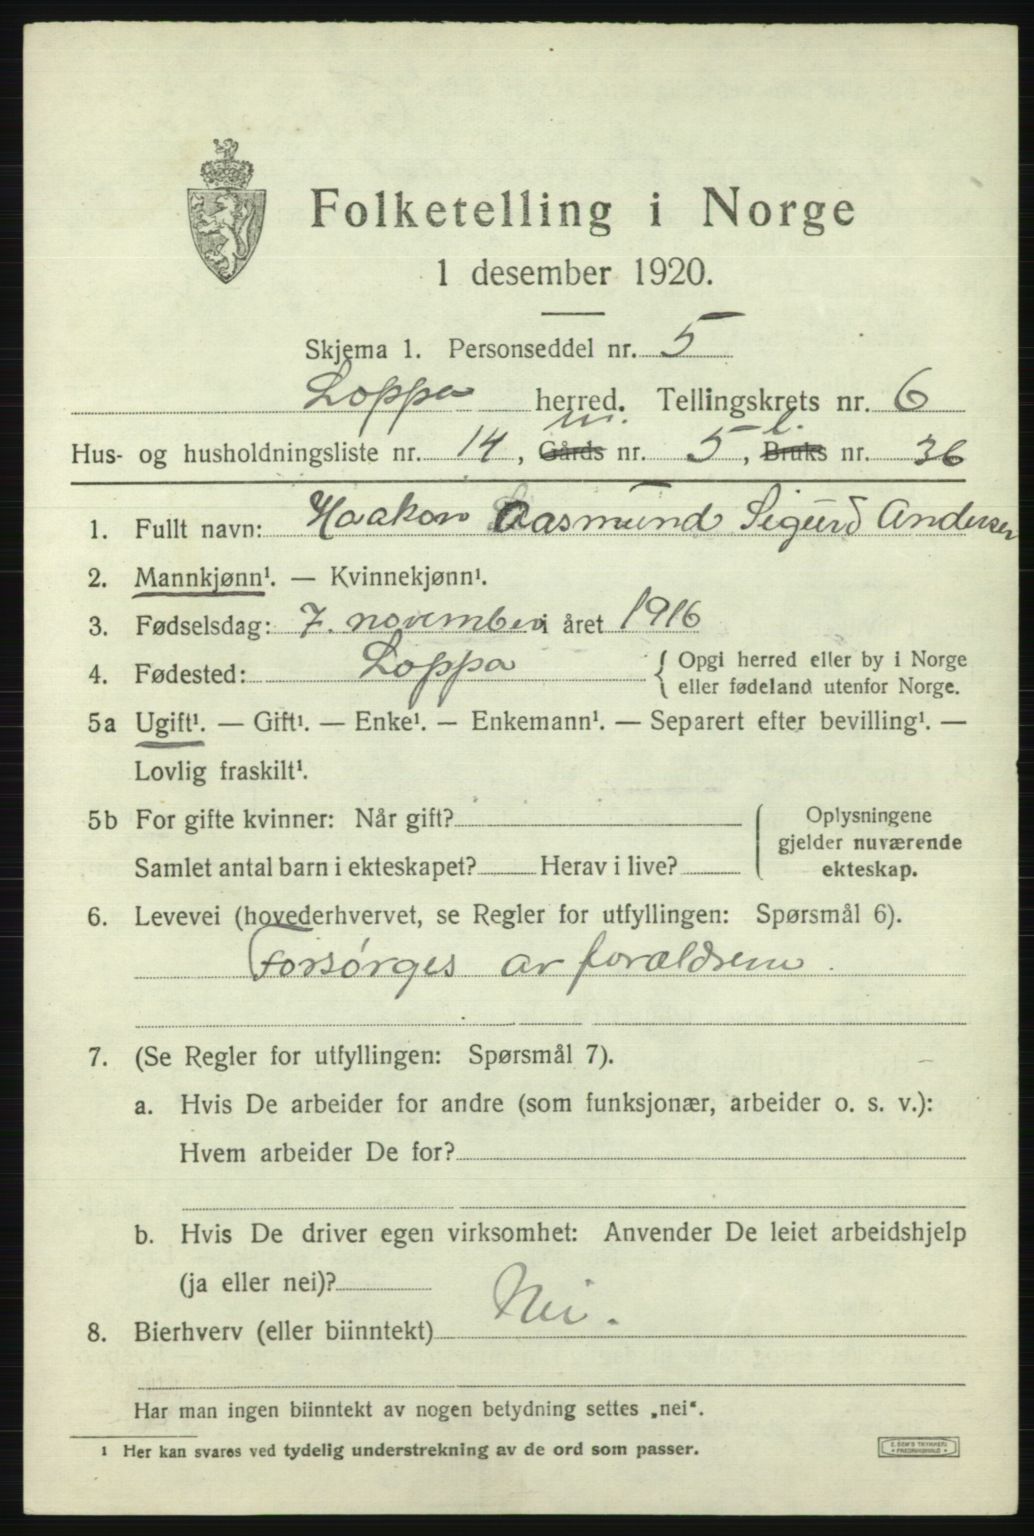 Folketelling i Norge
1 desember 1920.
Skjema 1. Personseddel nr. 5
Loppa herred. Tellingskrets nr. 6
m. l.
Hus- og husholdningsliste nr. 14, Gårds nr. 5, Bruks nr. 36
1. Fullt navn: Haakon Aasmund Sigurd Andersen
2. Mannkjønn¹. — Kvinnekjønn¹.
3. Fødselsdag: 7. november i året 1916
4. Fødested: Loppa { Opgi herred eller by i Norge
eller fødeland utenfor Norge.
5a Ugift¹. — Gift¹. — Enke¹. — Enkemann¹. — Separert efter bevilling¹. —
Lovlig fraskilt¹.
5b For gifte kvinner: Når gift? { Oplysningene
gjelder nuværende
Samlet antal barn i ekteskapet? Herav i live? ekteskap.
6. Levevei (hovederhvervet, se Regler for utfyllingen: Spørsmål 6).
Forsørges av forældrene.
7. (Se Regler for utfyllingen: Spørsmål 7).
a. Hvis De arbeider for andre (som funksjonær, arbeider o. s. v.):
Hvem arbeider De for?
b. Hvis De driver egen virksomhet: Anvender De leiet arbeidshjelp
(ja eller nei)?
8. Bierhverv (eller biinntekt) Nei.
Har man ingen biinntekt av nogen betydning settes „nei“.
¹ Her kan svares ved tydelig understrekning av de ord som passer.